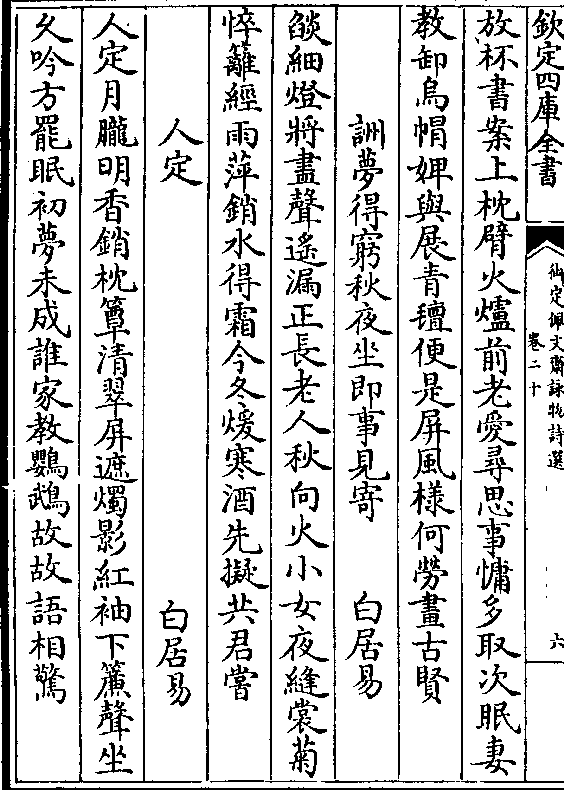 欽定四庫全書
御定佩文齋詠物詩選
卷二十
六
放杯書案上枕臂火爐前老愛尋思事慵多取次眠妻
教卸烏帽婢與展青氊便是屏風様何勞畫古賢
詶夢得窮秋夜坐即事見寄 白居易
燄細燈將盡聲遙漏正長老人秋向火小女夜縫裳菊
悴籬經雨萍銷水得霜今冬煖寒酒先擬共君嘗
人定 白居易
人定月朧明香銷枕簟清翠屏遮燭影紅袖下簾聲坐
久吟方罷眠初夢未成誰家教鸚鵡故故語相驚